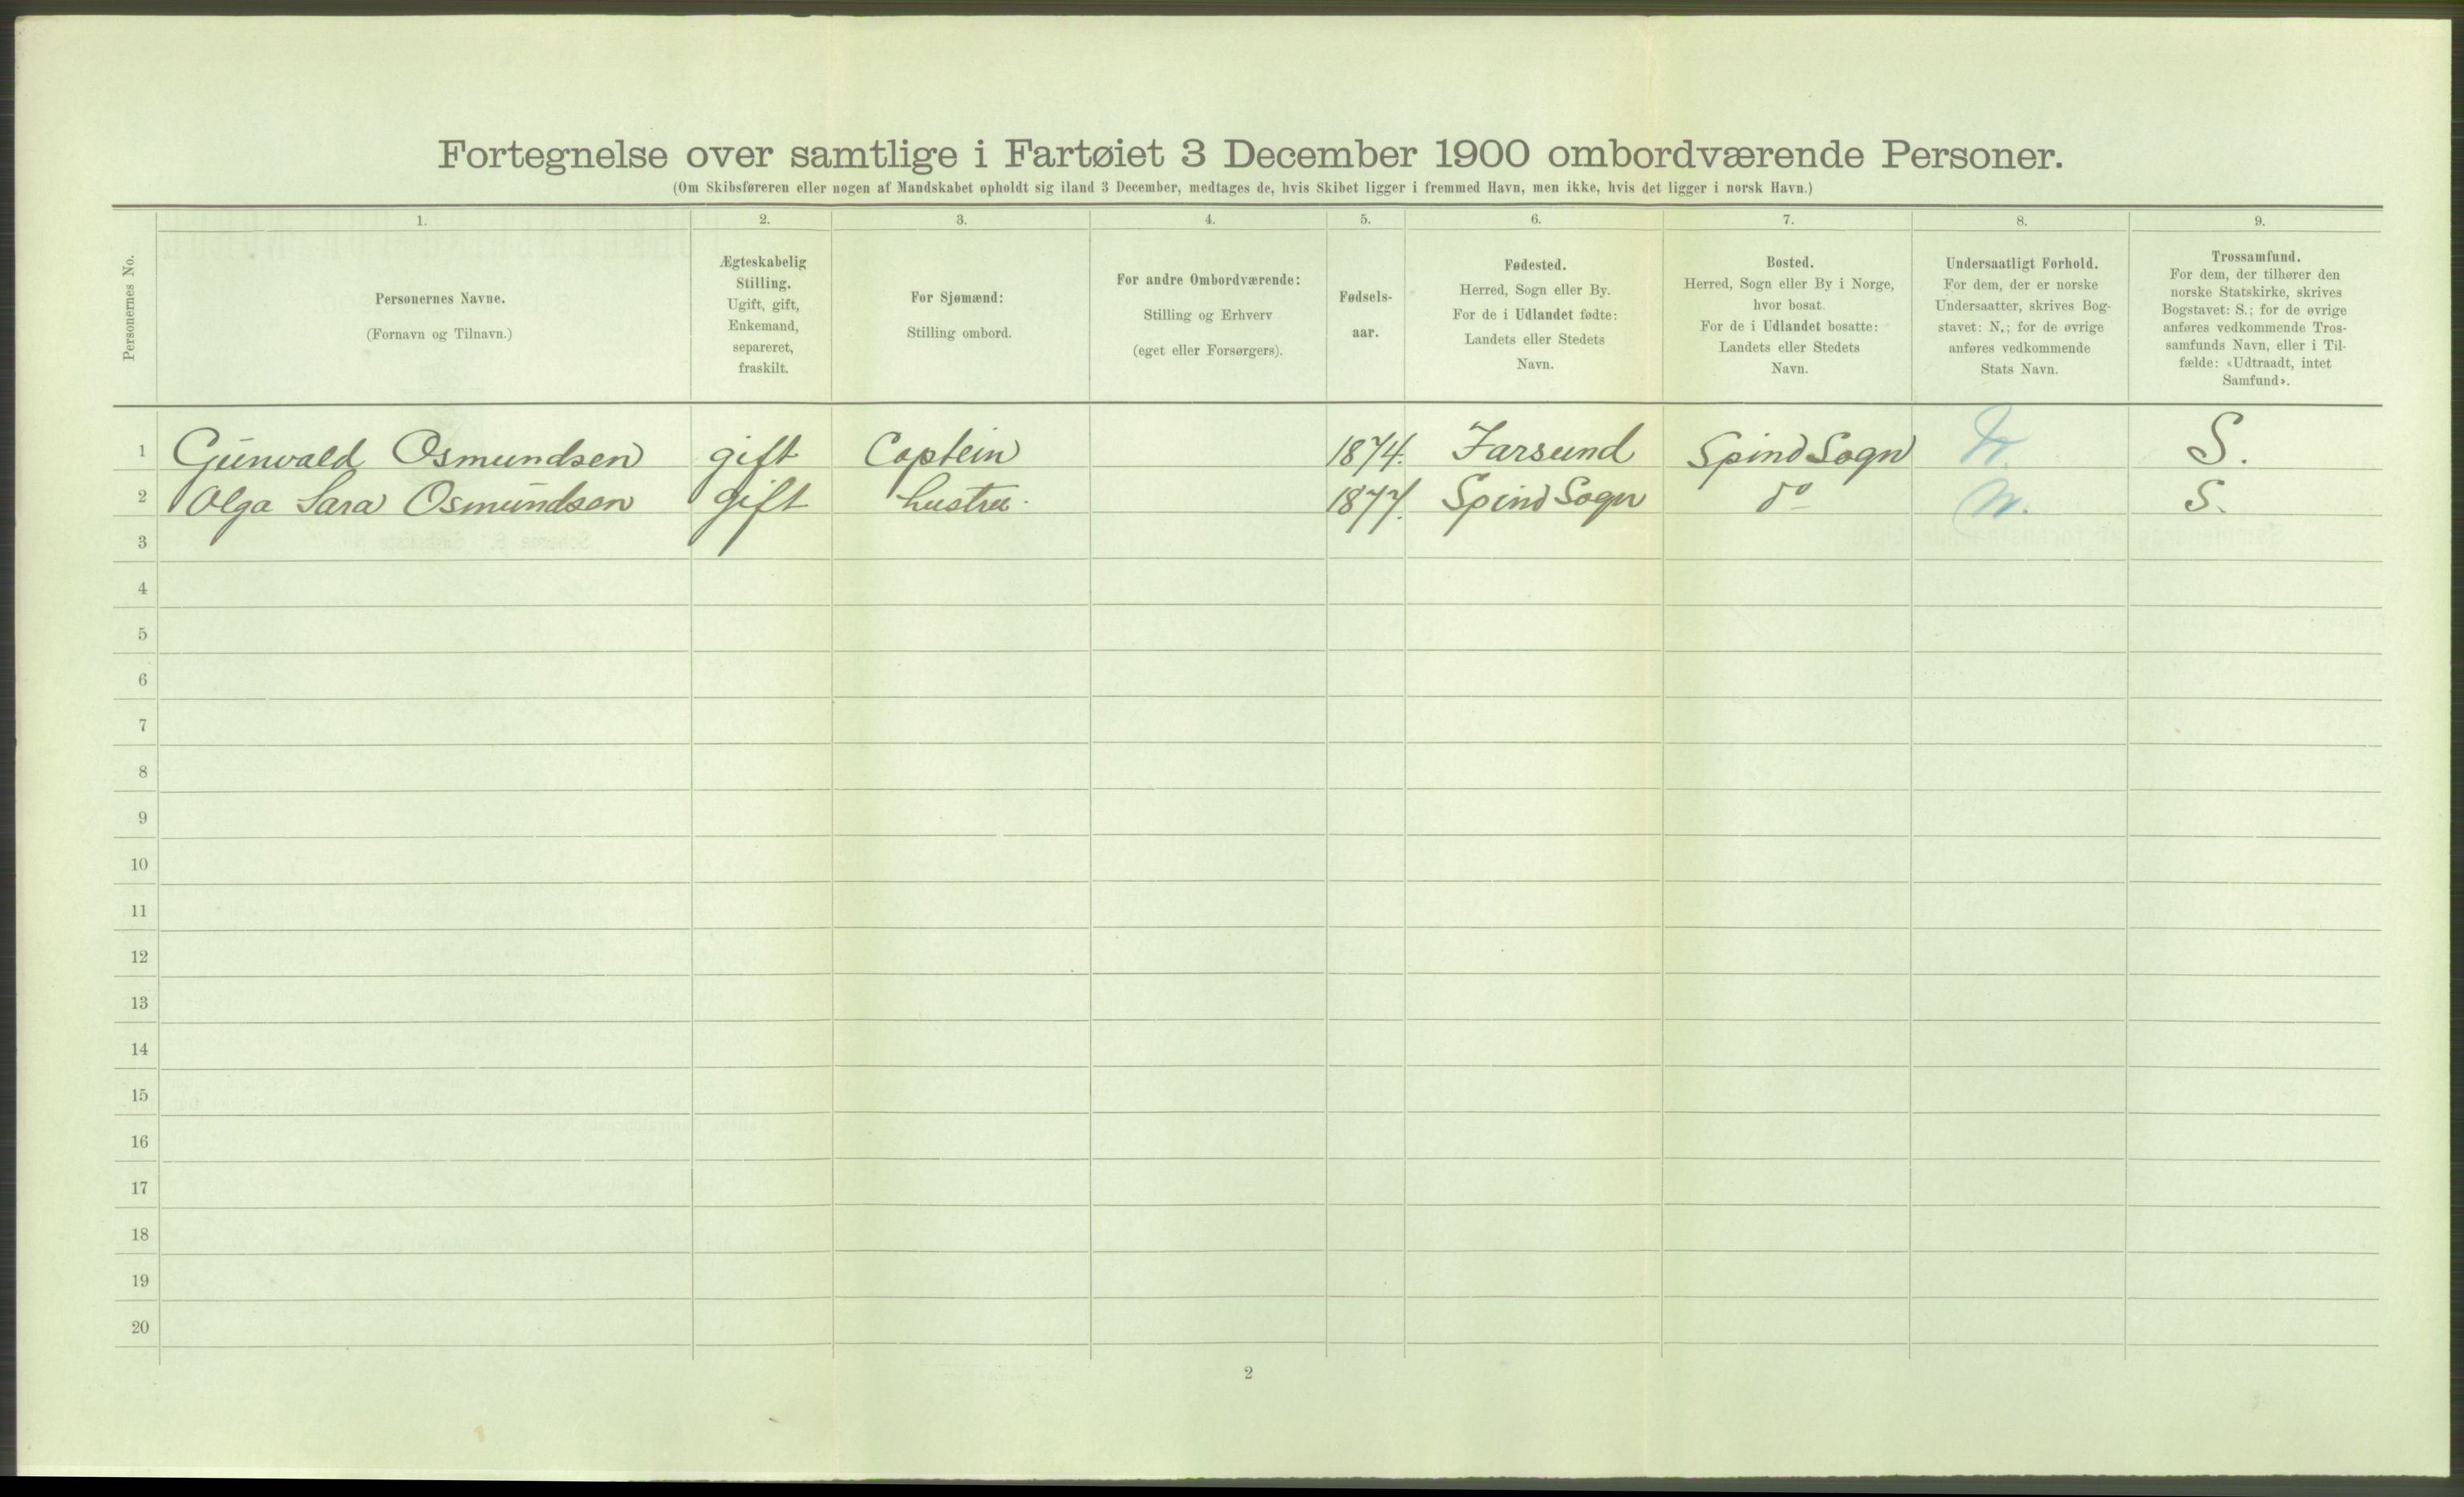 Fortegnelse over samtlige i Fartøiet 3 December 1900 ombordværende Personer.
(Om Skibsføreren eller nogen af Mandskabet opholdt sig iland 3 December, medtages de, hvis Skibet ligger i fremmed Havn, men ikke, hvis det ligger i norsk Havn.)
Personernes No.
1.
Personernes Navne.
(Fornavn og Tilnavn.)
2.
Ægteskabelig
Stilling.
Ugift, gift,
Enkemand,
separeret,
fraskilt.
3.
For Sjømænd:
Stilling ombord.
4.
For andre Ombordværende:
Stilling og Erhverv
(eget eller Forsørgers).
5.
Fødsels-
aar.
6.
Fødested.
Herred, Sogn eller By.
For de i Udlandet fødte:
Landets eller Stedets
Navn.
7.
Bosted.
Herred, Sogn eller By i Norge,
hvor bosat.
For de i Udlandet bosatte:
Landets eller Stedets
Navn.
8.
Undersaatligt Forhold.
For dem, der er norske
Undersaatter, skrives Bog-
stavet: N.; for de øvrige
anføres vedkommende
Stats Navn.
9.
Trossamfund.
For dem, der tilhører den
norske Statskirke, skrives
Bogstavet: S.; for de øvrige
anføres vedkommende Tros-
samfunds Navn, eller i Til-
fælde: «Udtraadt, intet
Samfund».
1 Gunvald Osmundsen gift Captein 1874. Farsund Spind Sogn N. S.
2 Olga Sara Osmundsen gift hustru. 1877. Spind Sogn do N. S.
3
4
5
6
7
8
9
10
11
12
13
14
15
16
17
18
19
20
2